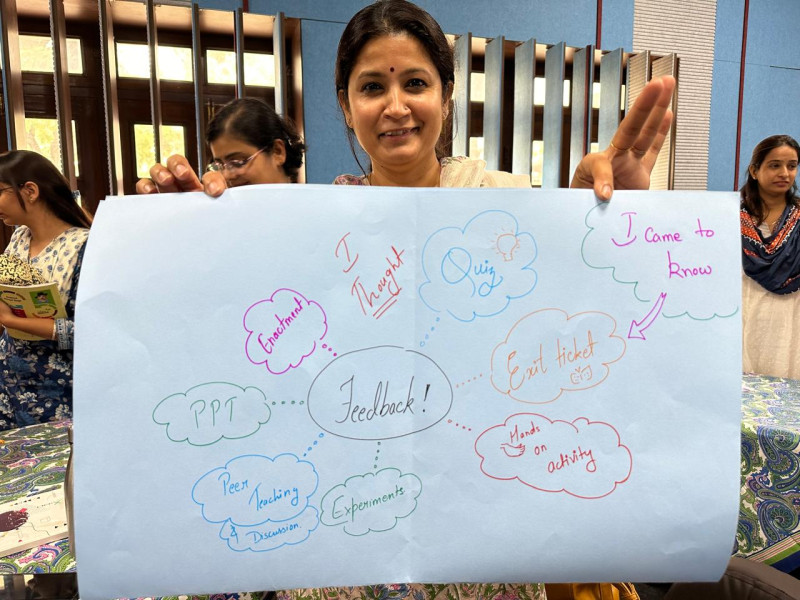 I
Thought
Quiz
I came to
know
Enactment
Exit ticket
PPT
Feedback!
Hands
on
activity
Peer
Teaching
& Discussion.
Experiments